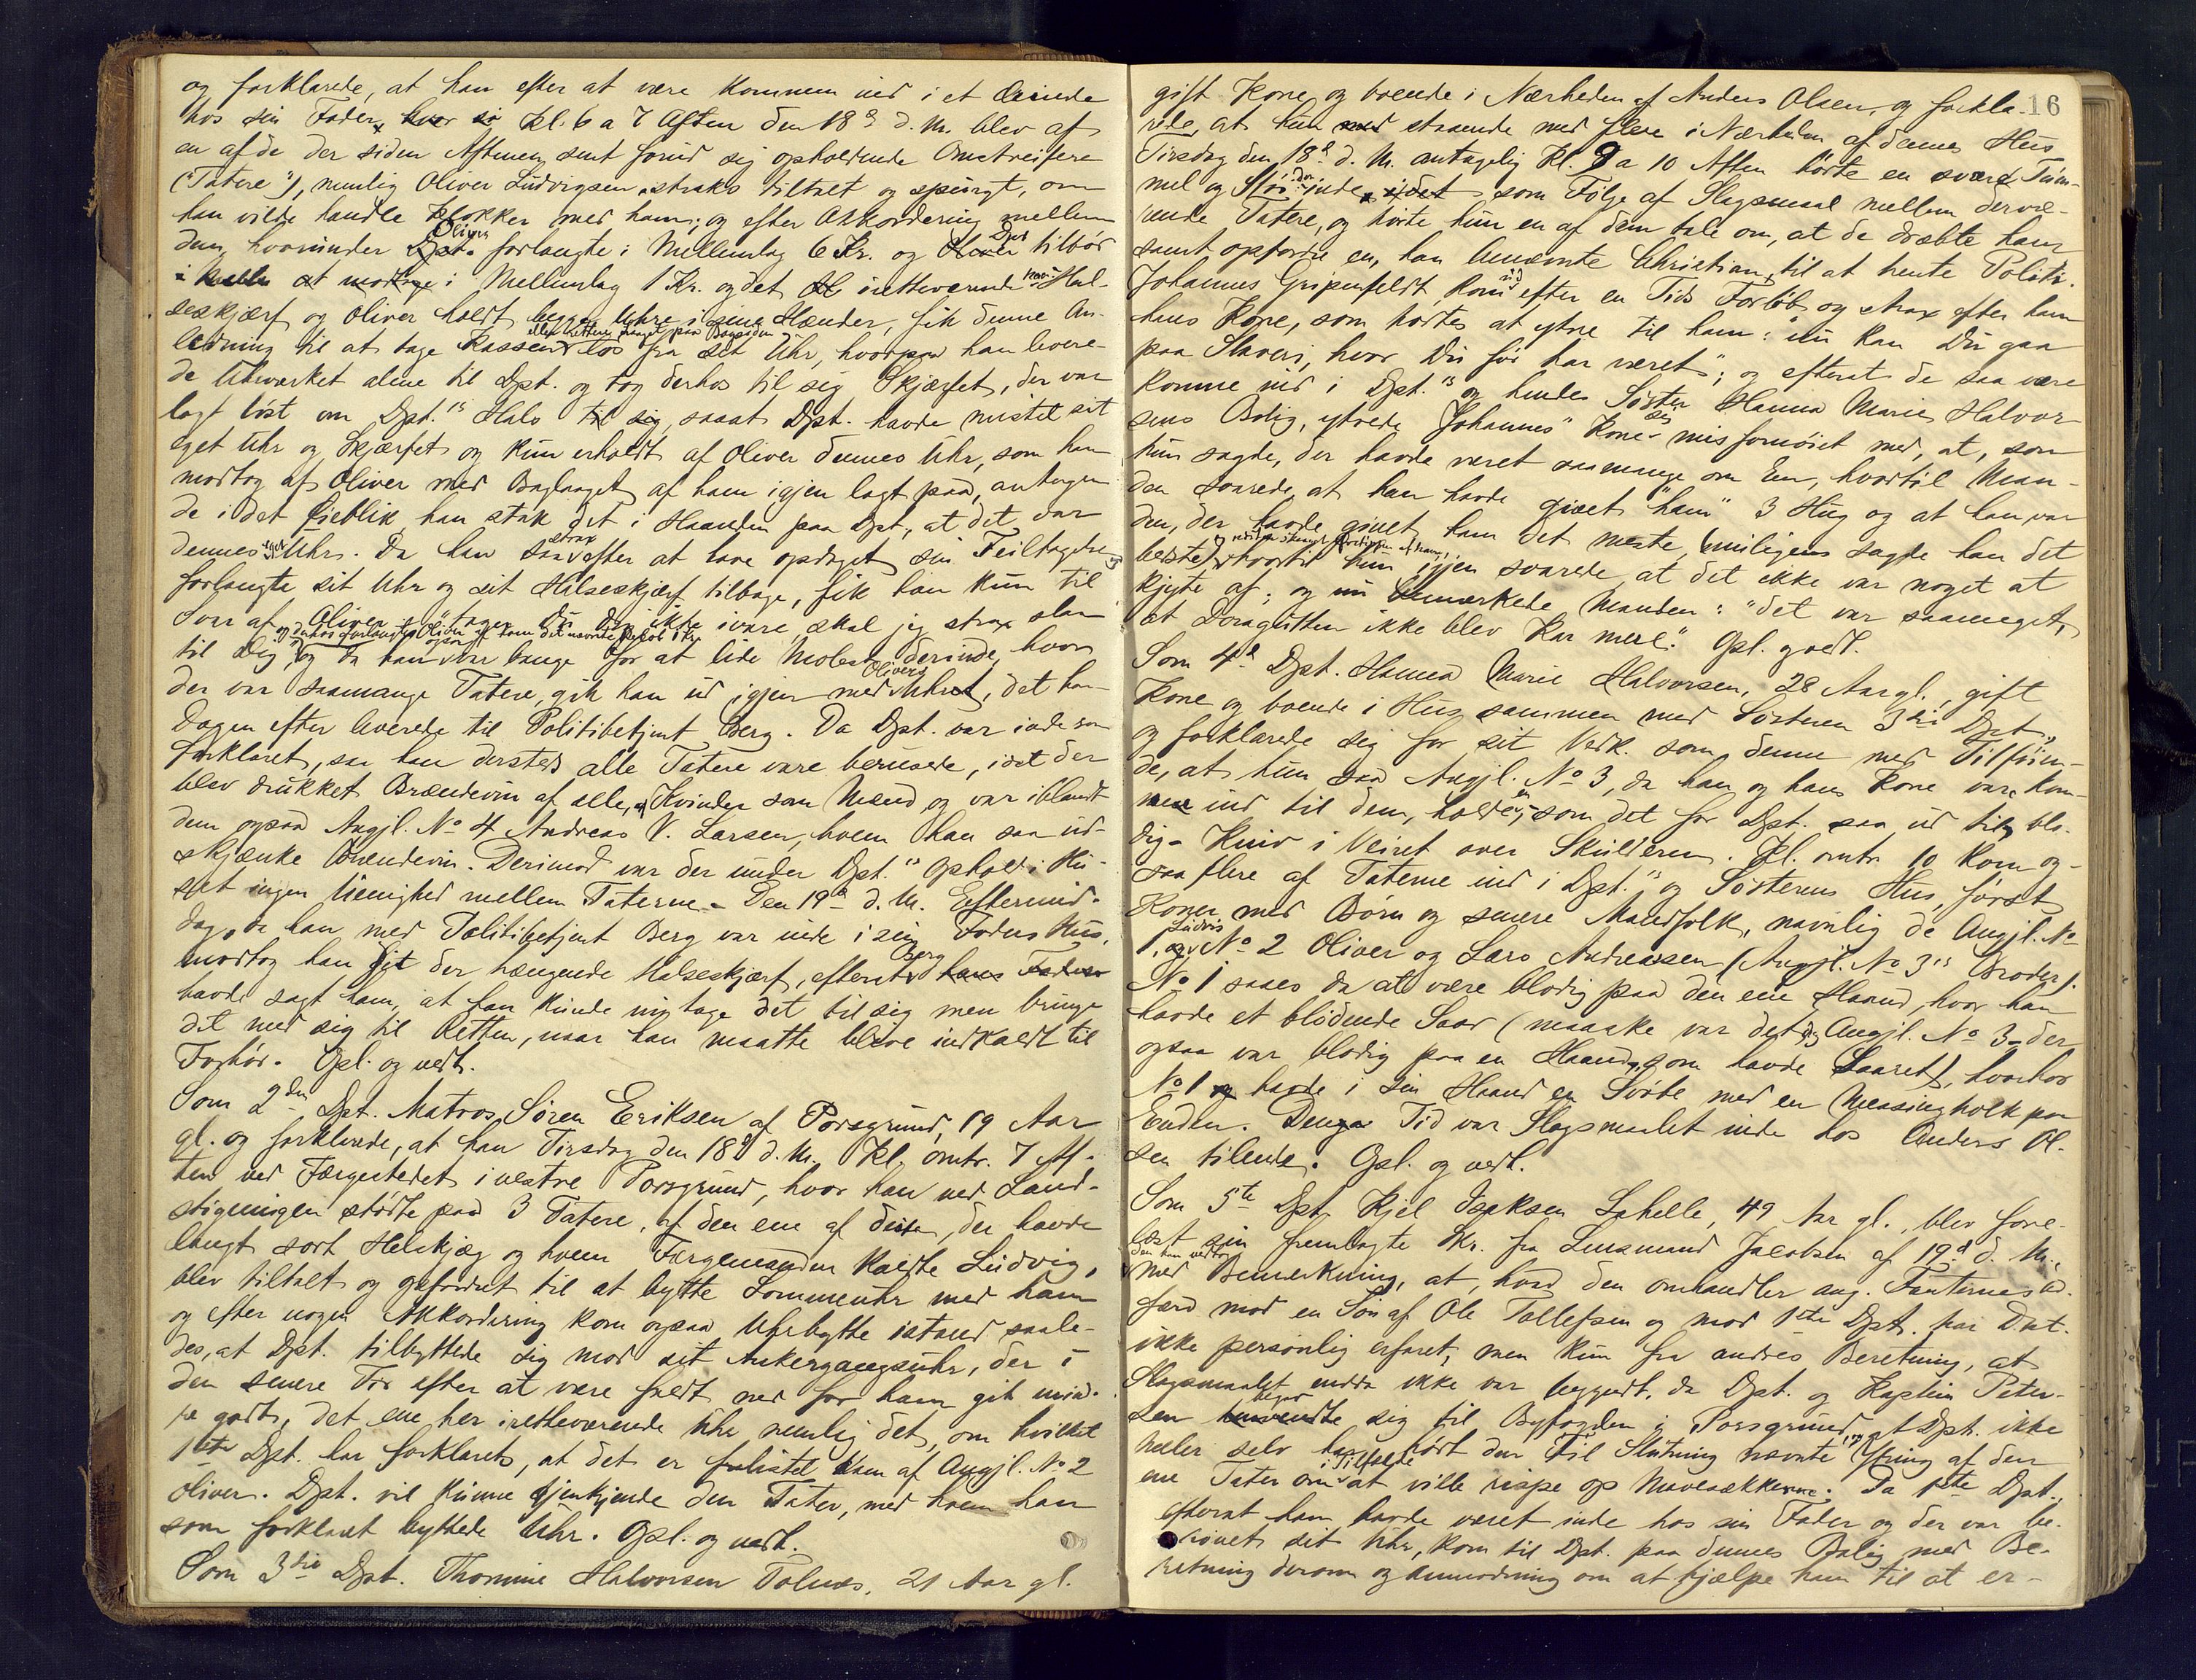 og forklarede, at han efter at være kommen ind i et Ærinde
hos sin Fader, Kl. 6 a 7 Aften den 18de d. M. blev af
en af de der siden Aftenen sent forud sig opholdende Omstreifere
("Tatere"), nemlig Oliver Ludvigsen, straks tiltalt og spurgt, om
han vilde handle Klokker med ham; og efter Akkordering mellem
dem, hvorunder Oliver forlangte i Mellemlag 6 Kr. og Dpt. tilbød
i Mellemlag 1 Kr. og det iretteværende Hal-
seskjærf og Oliver holdt begge Uhre i sine Hænder, fik denne An-
ledning til at tage Kassen eller rettere laaget paa Bagsiden løs fra sit Uhr, hvorpaa han levere-
de Uhrværket alene til Dpt. og tog derhos til sig Skjærfet, der var
lagt løst om Dpt.s Hals til sig, saaat Dpt. havde mistet sit
eget Uhr og Skjærfet og kun erholdt af Oliver dennes Uhr, som han
modtog af Oliver med Baglaaget af ham igjen lagt paa, antagen-
de i det Øieblik han stak det i Haanden paa Dpt., at det var
dennes eget Uhr. Da han strax efter at have opdaget sin Feiltagelse
forlangte sit Uhr og sit Halseskjærf tilbage, fik han kun til
Svar af Oliver: "tager Du Dig ikke ivare, skal jeg strax slaa
til Dig", og derhos forlangte Oliver af ham det nævnte Beløb 1 Kr.
og da han var bange for at lide Molest derinde, hvor
der var saamange Tatere, gik han ud igjen med Olivers Uhret, det han
Dagen efter leverede til Politibetjent Berg. Da Dpt. var inde som
forklaret, saa han dersteds alle Tatere være berusede, idet der
blev drukket Brændevin af alle, Kvinder som Mænd og var iblandt
dem ogsaa Angjl. No 4 Andreas V. Larsen, hvem han saa ud-
skjænke Brændevin. Derimod var der under Dpt.s Ophold i Hu-
set ingen Uenighed mellem Taterne. Den 19de d. M. Eftermid-
dag, da han med Politibetjent Berg var inde i sin Faders Hus,
modtog han sit der hængende Halseskjærf, efterat Berg
havde sagt ham, at han kunde nu tage det til sig men bringe
det med sig til Retten, naar han maatte blive indkaldt til
Forhør. Opl. og vedt.
Som 2den Dpt. Matros Søren Eriksen af Porsgrund, 19 Aar
gl. og forklarede, at han Tirsdag den 18de d. M. Kl. omtr. 7 Af-
ten ved Færgestedet i vestre Porsgrund, hvor han ved Land-
stigningen stødte paa 3 Tatere, af den ene af disse, der havde
langt sort Helskjæg og hvem Færgemanden kaldte Ludvig,
blev tiltalt og opfordret til at bytte Lommeuhr med ham
og efter nogen Akkordering kom ogsaa Uhrbytte istand saale-
des, at Dpt. tilbyttede sig mod sit Ankergangsuhr, der i
den senere Tid efter at være faldt ned for ham gik mind-
re godt, det ene her iretteværende Uhr nemlig det, om hvilket
1ste Dpt. har forklaret, at det er fralistet ham af Angjl. No 2
Oliver. Dpt. vil kunne gjenkjende den Tater, med hvem han
som forklaret byttede Uhr. Opl. og vedt.
Som 3die Dpt. Thomine Halvorsen Tolnæs, 21 Aar gl.
16
gift Kone og boende i Nærheden af Anders Olsen, og forkla-
rede, at hun staaende med flere i Nærheden af dennes Hus
Tirsdag den 18de d. M. antagelig Kl. 9 a 10 Aften hørte en svær Tum-
mel og Støi der inde, som Følge af Slagsmaal mellem derve-
rende Tatere, og hørte hun en af dem tale om, at de dræbte ham
samt opfordre en, han benævnte Christian, til at hente Politi.
Johannes Gripenfeldt kom ud efter en Tids Forløb og strax efter ham
hans Kone, som hørtes at ytre til ham: "nu kan Du gaa
paa Slaveri, hvor Du før har været"; og efterat de saa være
komne ind i Dpt.s og hendes Søster Hanna Marie Halvor-
sens Bolig, ytrede Johannes' Kone sig misfornøiet med, at, som
hun sagde, der havde været saamange om Een, hvortil Man-
den svarede at han havde givet "ham" 3 Hug og at han var
den, der havde givet ham det meste, (muligens sagde han det
beste), hvortil hun igjen svarede at det ikke var noget at
skryte af; og nu bemærkede Manden: "det var saameget,
at Dragutten ikke blev Kar mere". Opl. og vedt.
Som 4de Dpt. Hanna Marie Halvorsen, 28 Aar gl., gift
Kone og boende i Hus sammen med Søsteren 3die Dpt.,
og forklarede sig for sit Vedk. som denne med Tilføien-
de, at hun saa Angjl. No 3, da han og hans Kone vare kom-
ne ind til dem, holde en, som det for Dpt. saa ud til, blo-
dig Kniv i Veiret over Skulderen. Kl. omtr. 10 kom og-
saa flere af Taterne ind i Dpt.s og Søsterens Hus, først
Koner med Børn og senere Mandfolk, navnlig de Angjl. No
1 Ludvig, No 2 Oliver og Lars Andreassen (Angjl. No 3's Broder).
No 1 saaes da at være blodig paa den ene Haand, hvor han
havde et blødende Saar (maaske var det dog Angjl. No 3 der
ogsaa var blodig paa en Haand, som havde Saaret), hvorhos
No 1 havde i sin Haand en Svøbe med en Messingholk paa
Enden. Dengang Tid var Slagsmaalet inde hos Anders Ol-
sen tilende. Opl. og vedt.
Som 5te Dpt. Kjel Isaksen Lahelle, 49 Aar gl., blev fore-
læst sin fremlagte Skr. fra Lensmand Jacobsen af 19de d. M.,
den han vedtog
med Bemerkning, at, hvad den omhandler ang. Fanternes Ad-
færd mod en Søn af Ole Tollefsen og mod 1ste Dpt. har Dpt.
ikke personlig erfaret, men kun fra andres Beretning, at
Slagsmaalet endda ikke var begyndt, da Dpt. og Kaptein Peter-
sen begav sig til Byfogden i Porsgrund, at Dpt. ikke
heller selv har hørt den til Slutning nævnte Ytring af den
ene Tater om i Tilfælde at ville rispe op Mavesækkerne. Da 1ste Dpt.,
efterat han havde været inde hos sin Fader og der var be-
røvet sit Uhr, kom til Dpt. paa dennes Bolig med Be-
retning derom og Anmodning om at hjælpe ham til at er-